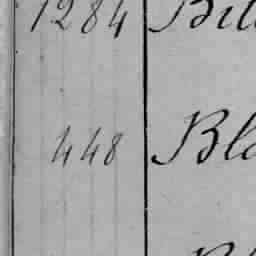 1284 Bil
448 Bla